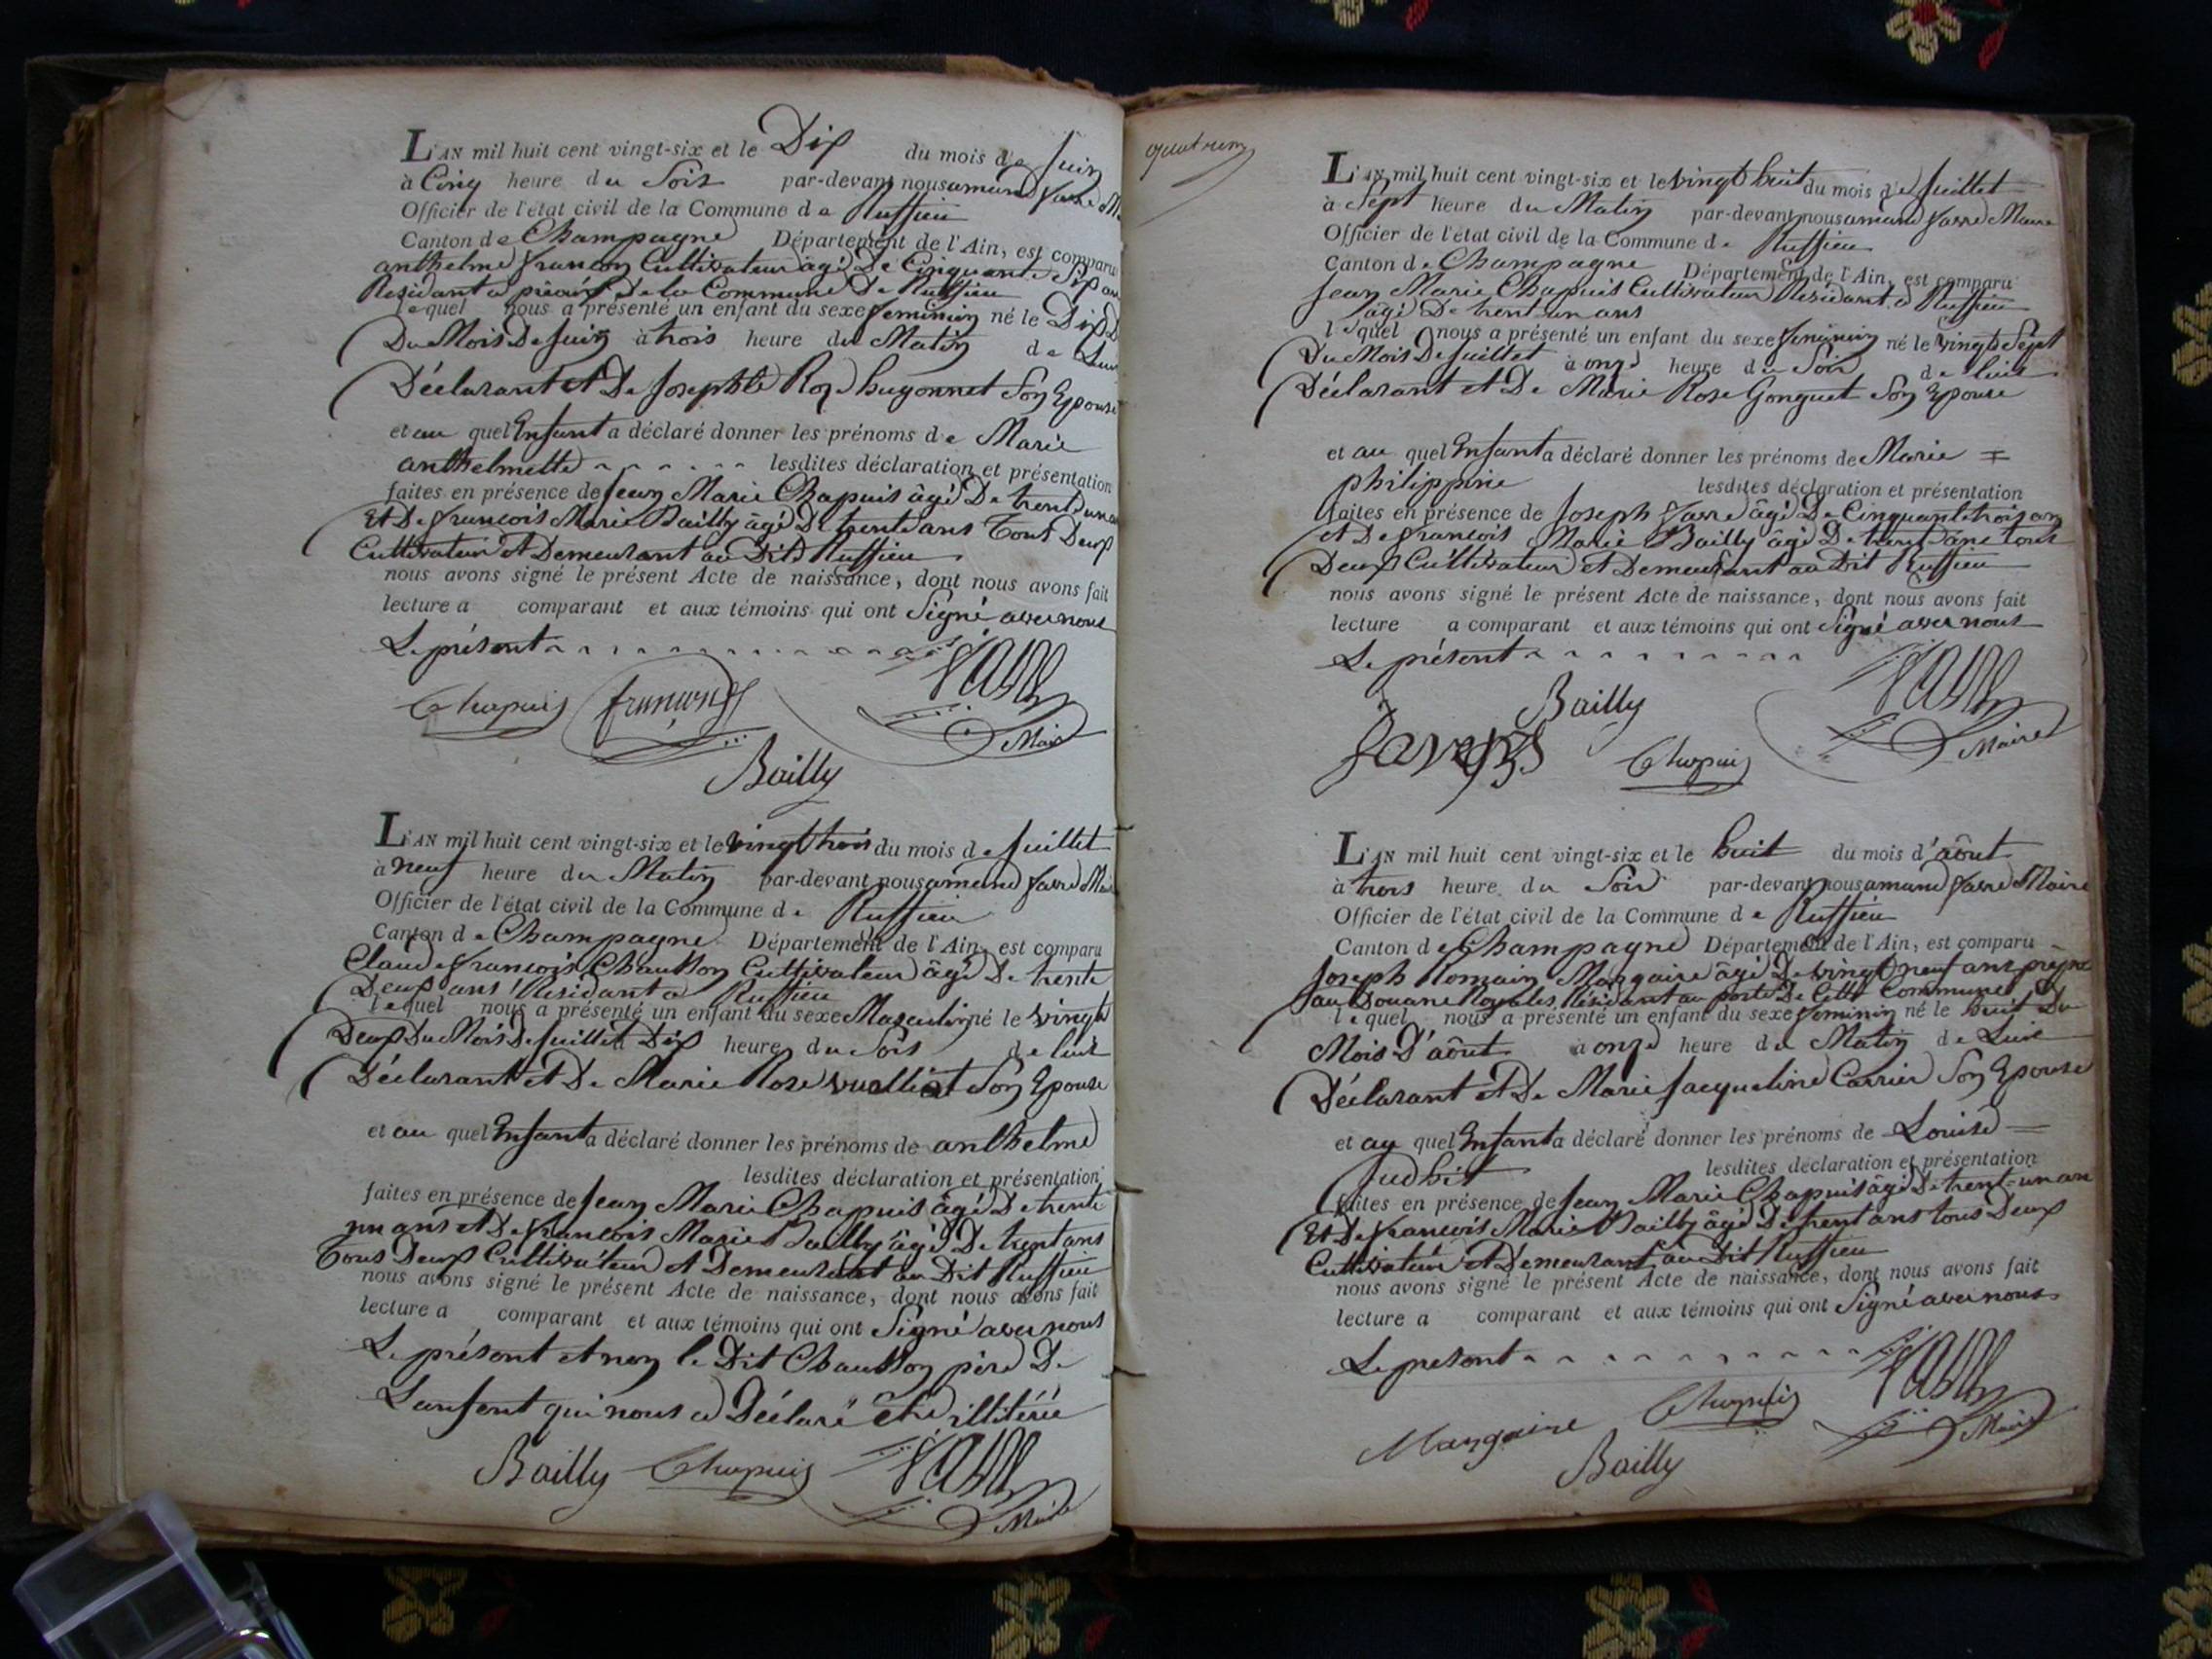 L'AN mil huit cent vingt-six et le Dix du mois de Juin
à Cinq heure du Soir par-devant nous amand favre
Officier de l'état civil de la Commune de Ruffieu
Canton de Champagne Département de l'Ain, est comparu
anthelme françon Cultivateur âgé De Cinquante Six
Residant a De la Commune De Ruffieu
lequel nous a présenté un enfant du sexe feminin né le Dix
Du Mois De Juin à trois heure du Matin de Lui
Déclarant et De Josephte Roze hugonnet Son Epouse
et au quel Enfant a déclaré donner les prénoms de Marie
anthelmette lesdites déclaration et présentation
faites en présence de Jean Marie Chapuis âgé De trent un
Et De francois Marie Bailly âgé De trent ans Tous Deux
Cultivateur et Demeurant au Dit Ruffieu
nous avons signé le présent Acte de naissance, dont nous avons fait
lecture a comparant et aux témoins qui ont Signé avec nous
Le présent
Chapuis françon
favre Maire
Bailly
L'AN mil huit cent vingt-six et le vingt trois du mois de Juillet
à neuf heure du Matin par-devant nous amand favre
Officier de l'état civil de la Commune de Ruffieu
Canton de Champagne Département de l'Ain, est comparu
Claude francois Chautton Cultivateur âgé De trente
Deux ans Residant a Ruffieu
lequel nous a présenté un enfant du sexe Masculin né le vingt
Deux Du Mois De Juillet à Dix heure du Soir de lui
Déclarant et De Marie Rose vuilliot Son Epouse
et au quel Enfant a déclaré donner les prénoms de anthelme
lesdites déclaration et présentation
faites en présence de Jean Marie Chapuis âgé De trente
un ans et De francois Marie Bailly âgé De trent ans
Tous Deux Cultivateur et Demeurant au Dit Ruffieu
nous avons signé le présent Acte de naissance, dont nous avons fait
lecture a comparant et aux témoins qui ont Signé avec nous
Le présent et non le Dit Chautton père De
Lenfent qui nous a Déclaré être illitérée
Bailly Chapuis favre
Maire
L'AN mil huit cent vingt-six et le vingt huit du mois de Juillet
à Sept heure du Matin par-devant nous amand favre Maire
Officier de l'état civil de la Commune de Ruffieu
Canton de Champagne Département de l'Ain, est comparu
Jean Marie Chapuis Cultivateur Residant a Ruffieu
âgé De trent-un ans
lequel nous a présenté un enfant du sexe feminin né le vingt Sept
Du Mois De Juillet à onze heure du Soir de lui
Déclarant et De Marie Rose Gonguet Son Epouse
et au quel Enfant a déclaré donner les prénoms de Marie =
philippine lesdites déclaration et présentation
faites en présence de Joseph favre âgé De Cinquante trois an
et De francois Marie Bailly âgé De trent ans tous
Deux Cultivateur et Demeurant au Dit Ruffieu
nous avons signé le présent Acte de naissance, dont nous avons fait
lecture a comparant et aux témoins qui ont Signé avec nous
Le présent
Bailly favre
Chapuis Maire
L'AN mil huit cent vingt-six et le huit du mois d'aôut
à trois heure du Soir par-devant nous amand favre Maire
Officier de l'état civil de la Commune de Ruffieu
Canton de Champagne Département de l'Ain, est comparu
Joseph Romain Mangaire âgé De vingt neuf ans
au Douane Royales Résidant au poste De Cette Commune
lequel nous a présenté un enfant du sexe feminin né le huit Du
Mois D'aôut à onze heure du Matin de Lui
Déclarant et De Marie Jacqueline Carrier Son Epouse
et au quel Enfant a déclaré donner les prénoms de Louise =
Judhit lesdites déclaration et présentation
faites en présence de Jean Marie Chapuis âgé De trent-un an
Et De francois Marie Bailly âgé De trent ans tous Deux
Cultivateur et Demeurant au Dit Ruffieu
nous avons signé le présent Acte de naissance, dont nous avons fait
lecture a comparant et aux témoins qui ont Signé avec nous
Le présent
Mangaire Chapuis favre
Bailly Maire